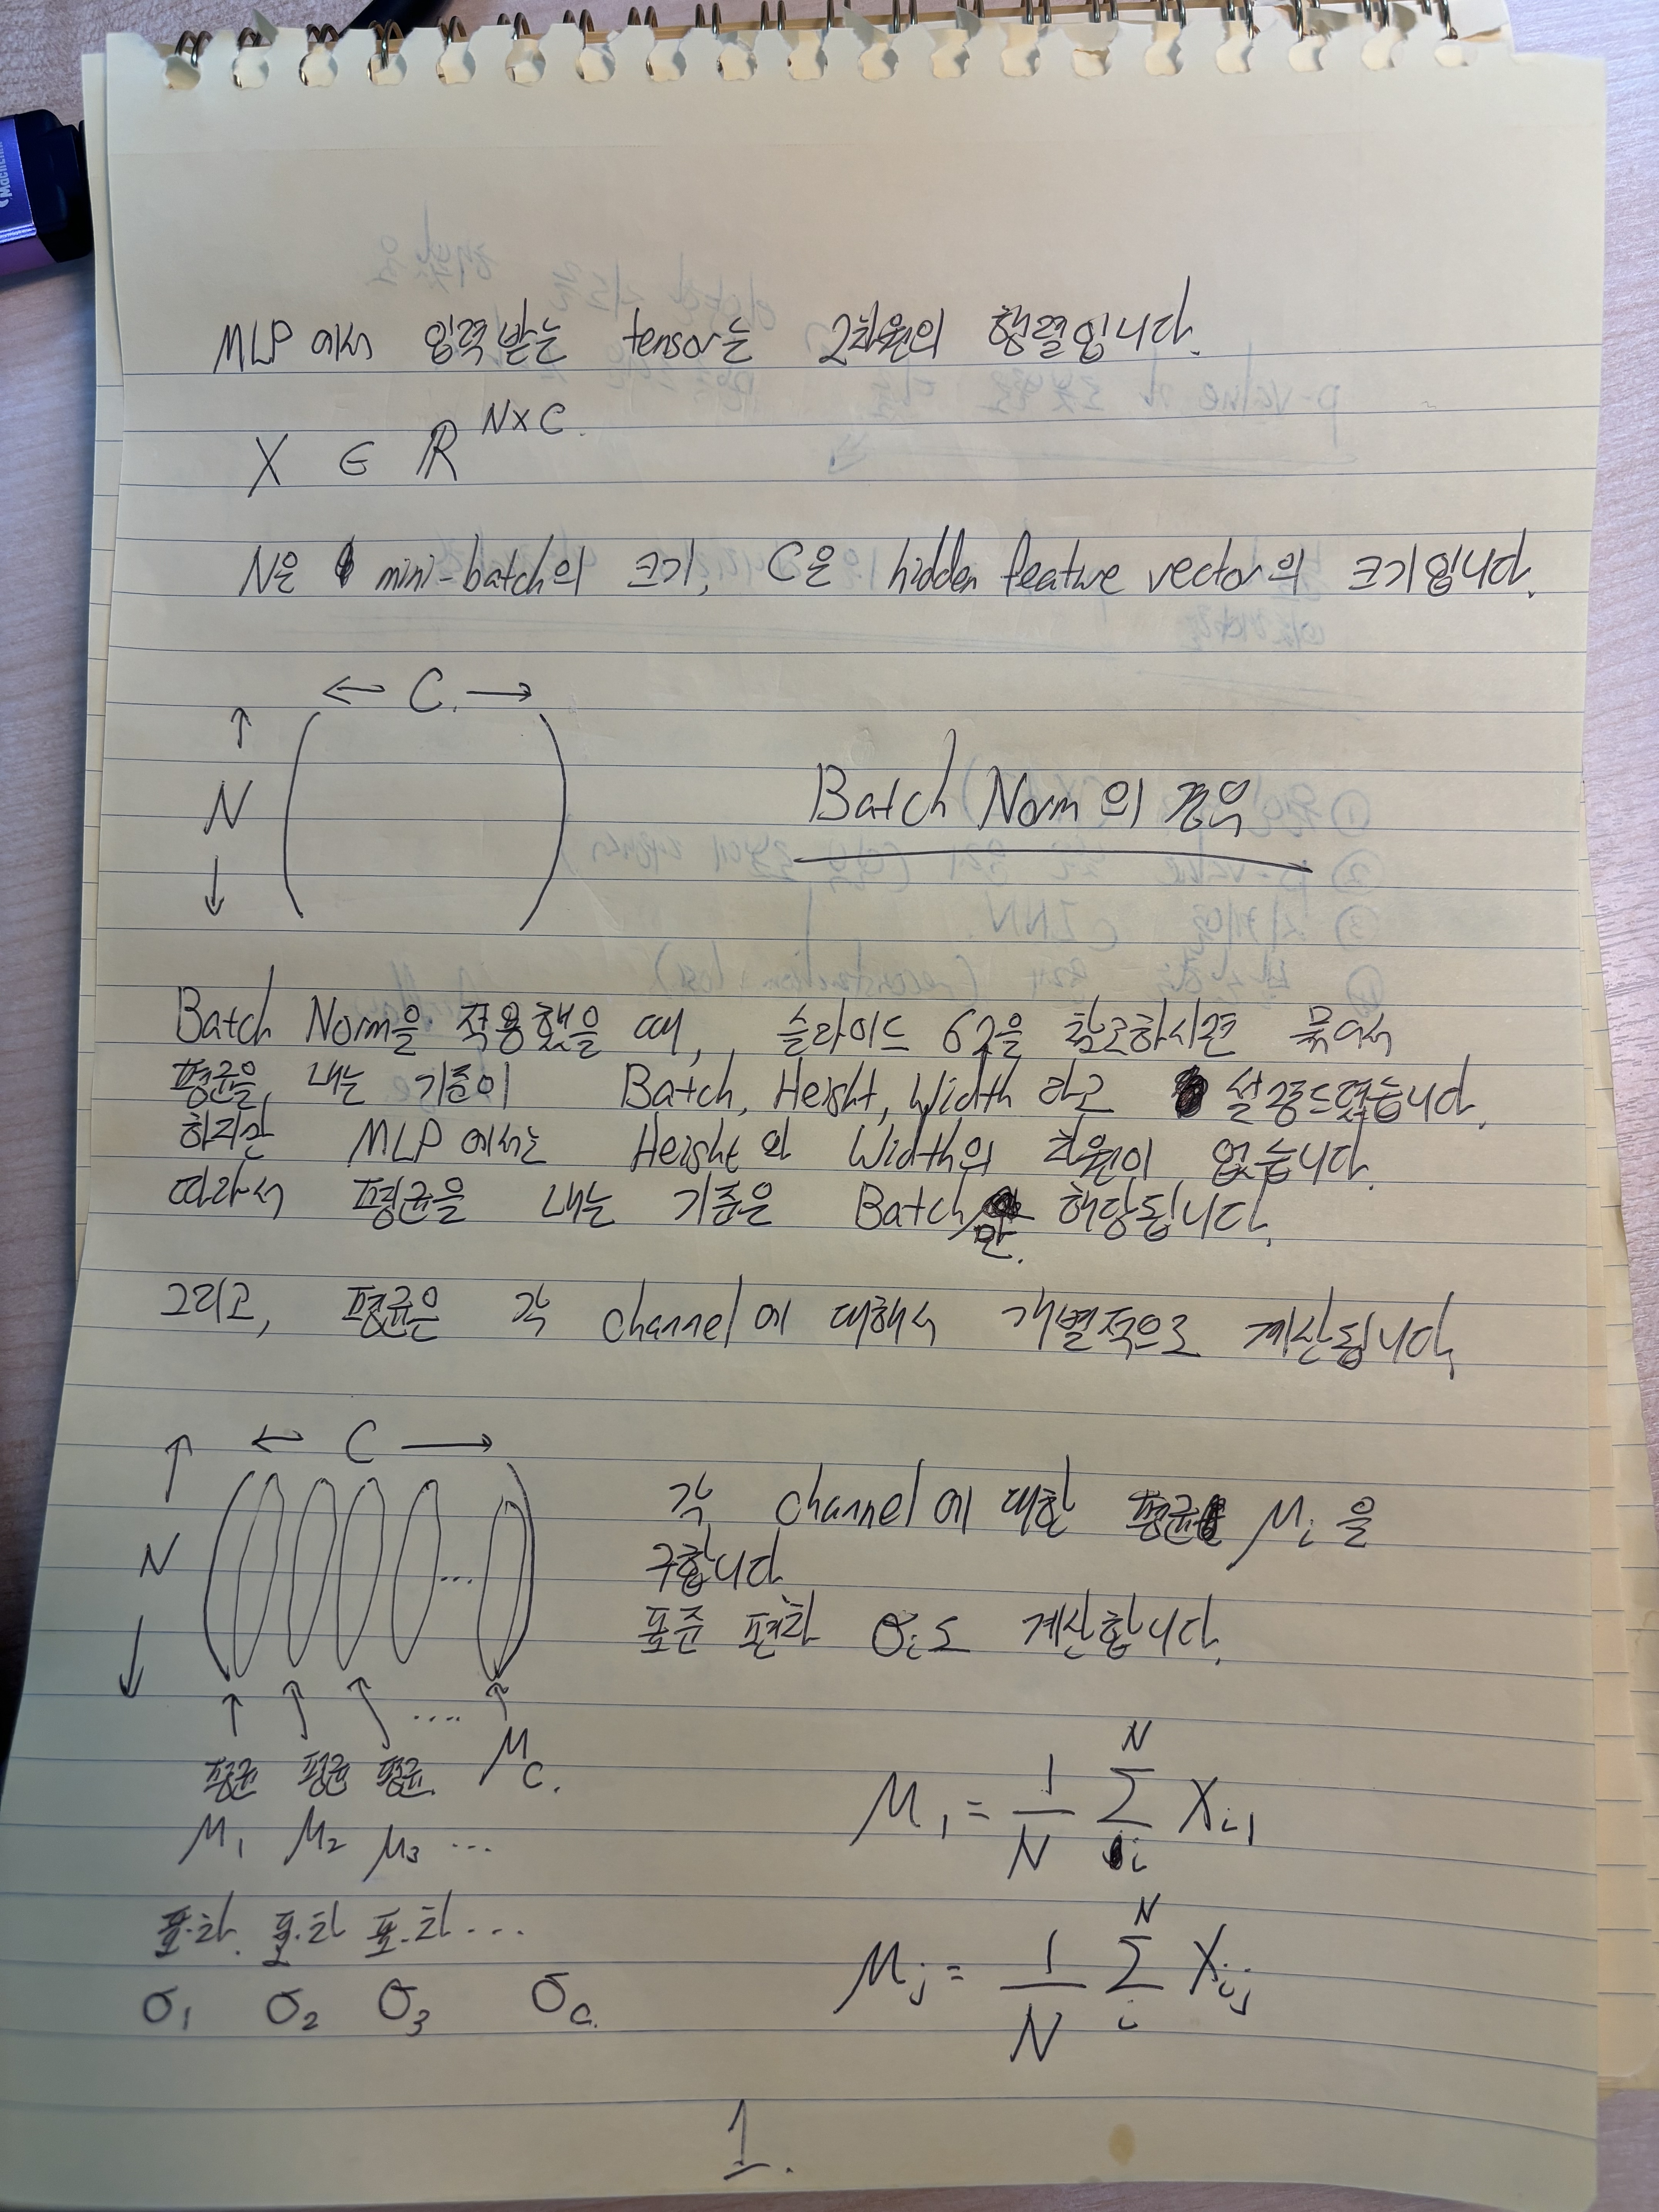 MLP에서 입력받는 tensor는 2차원의 행렬입니다.
X ∈ ℝ^{N×C}.
N은 mini-batch의 크기, C은 hidden feature vector의 크기입니다.
← C. →
↑
N
↓
Batch Norm의 경우
Batch Norm을 적용했을 때, 슬라이드 62을 참고하시면 묶어서
평균을 내는 기준이 Batch, Height, Width 라고 설명드렸습니다.
하지만 MLP에서는 Height와 Width의 차원이 없습니다.
따라서 평균을 내는 기준은 Batch만 해당됩니다.
그리고, 평균은 각 channel에 대해서 개별적으로 계산됩니다.
← C →
↑
N
↓
...
↑ ↑ ↑ .... ↑
평균 평균 평균. μ_C.
μ_1 μ_2 μ_3 ...
표.차. 표.차 표.차 ...
σ_1 σ_2 σ_3 σ_C.
각 channel에 대한 평균 μ_i을
구합니다
표준 편차 σ_i도 계산합니다.
μ_1 = \frac{1}{N} \sum_{i}^{N} X_{i1}
μ_j = \frac{1}{N} \sum_{i}^{N} X_{ij}
1.